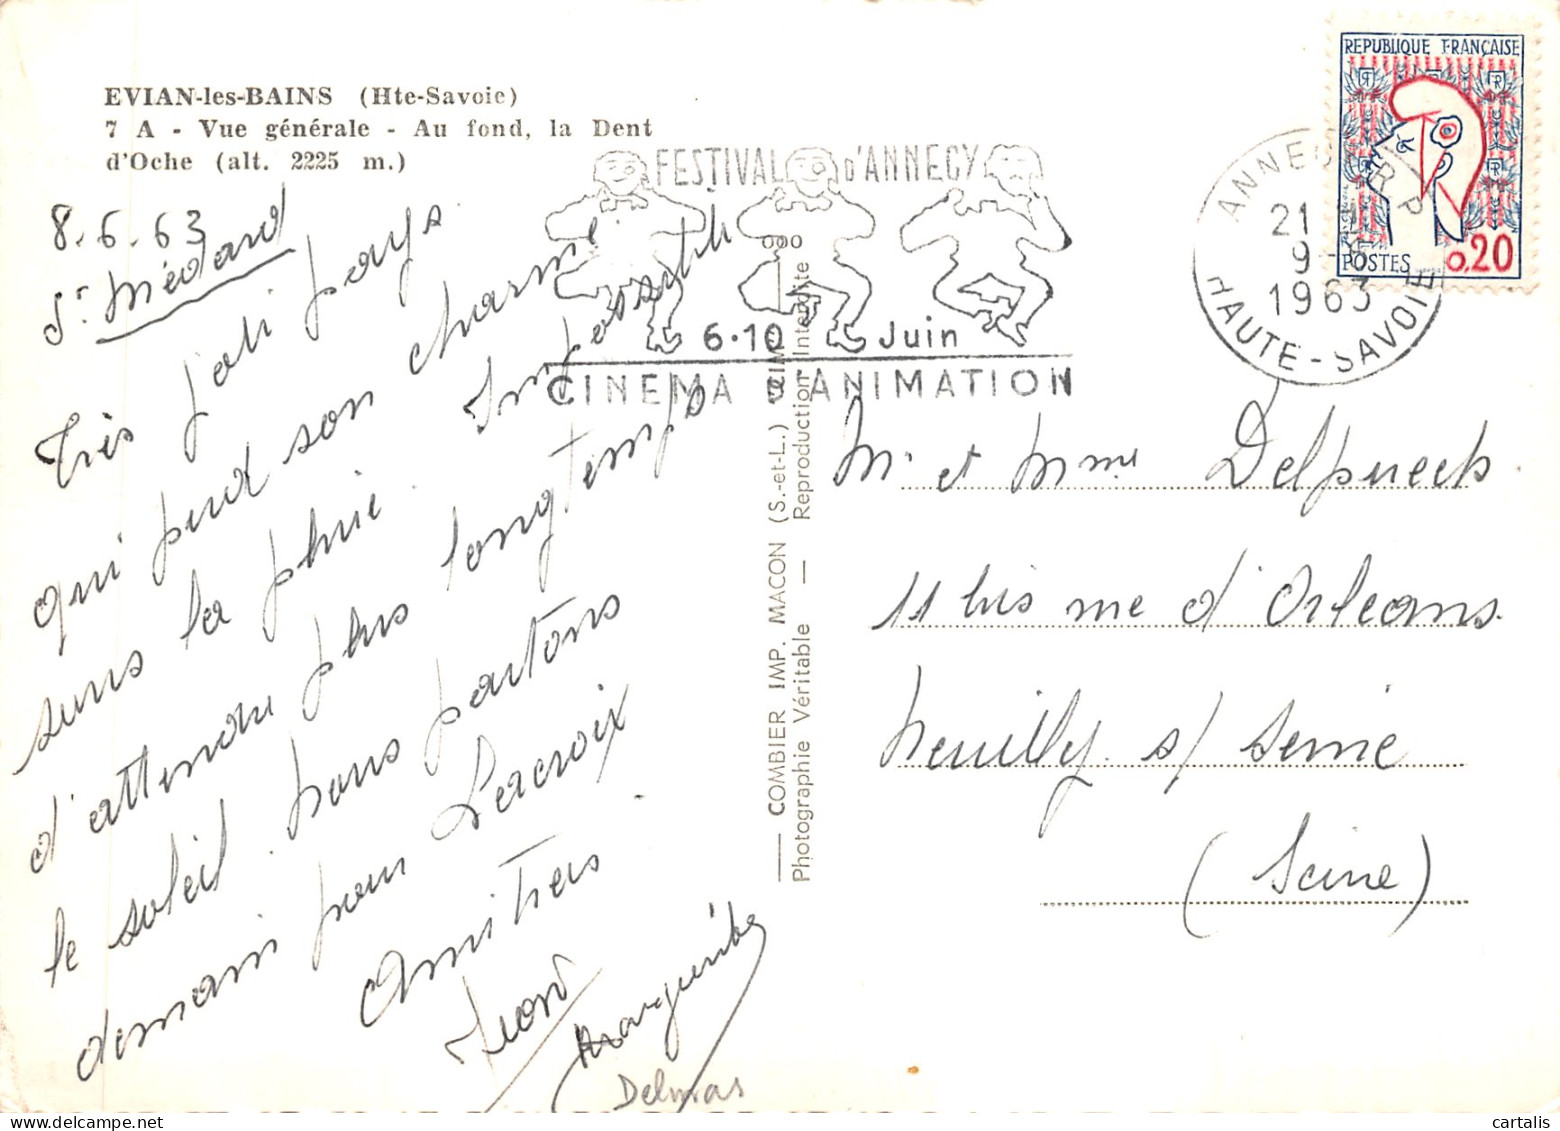 EVIAN-les-BAINS (Hte-Savoie)
7 A - Vue générale - Au fond, la Dent
d'Oche (alt. 2225 m.)
8.6.63
St Médard
Très joli pays
qui perd son charme
sous la pluie. Impossible
d'attendre plus longtemps
le soleil. Nous partons
demain pour Lacroix.
Amitiés
Marguerite
Delmas
FESTIVAL d'ANNECY
6.10 Juin
CINEMA D'ANIMATION
COMBIER IMP. MACON (S.-et-L.)
Photographie Véritable — Reproduction Interdite
ANNECY R.P
21 H
9-6
1963
HAUTE-SAVOIE
REPUBLIQUE FRANÇAISE
POSTES 0,20
Mr et Mme Delpuech
11 bis rue d'Orléans.
Neuilly s/ Seine
(Seine)
cartalis